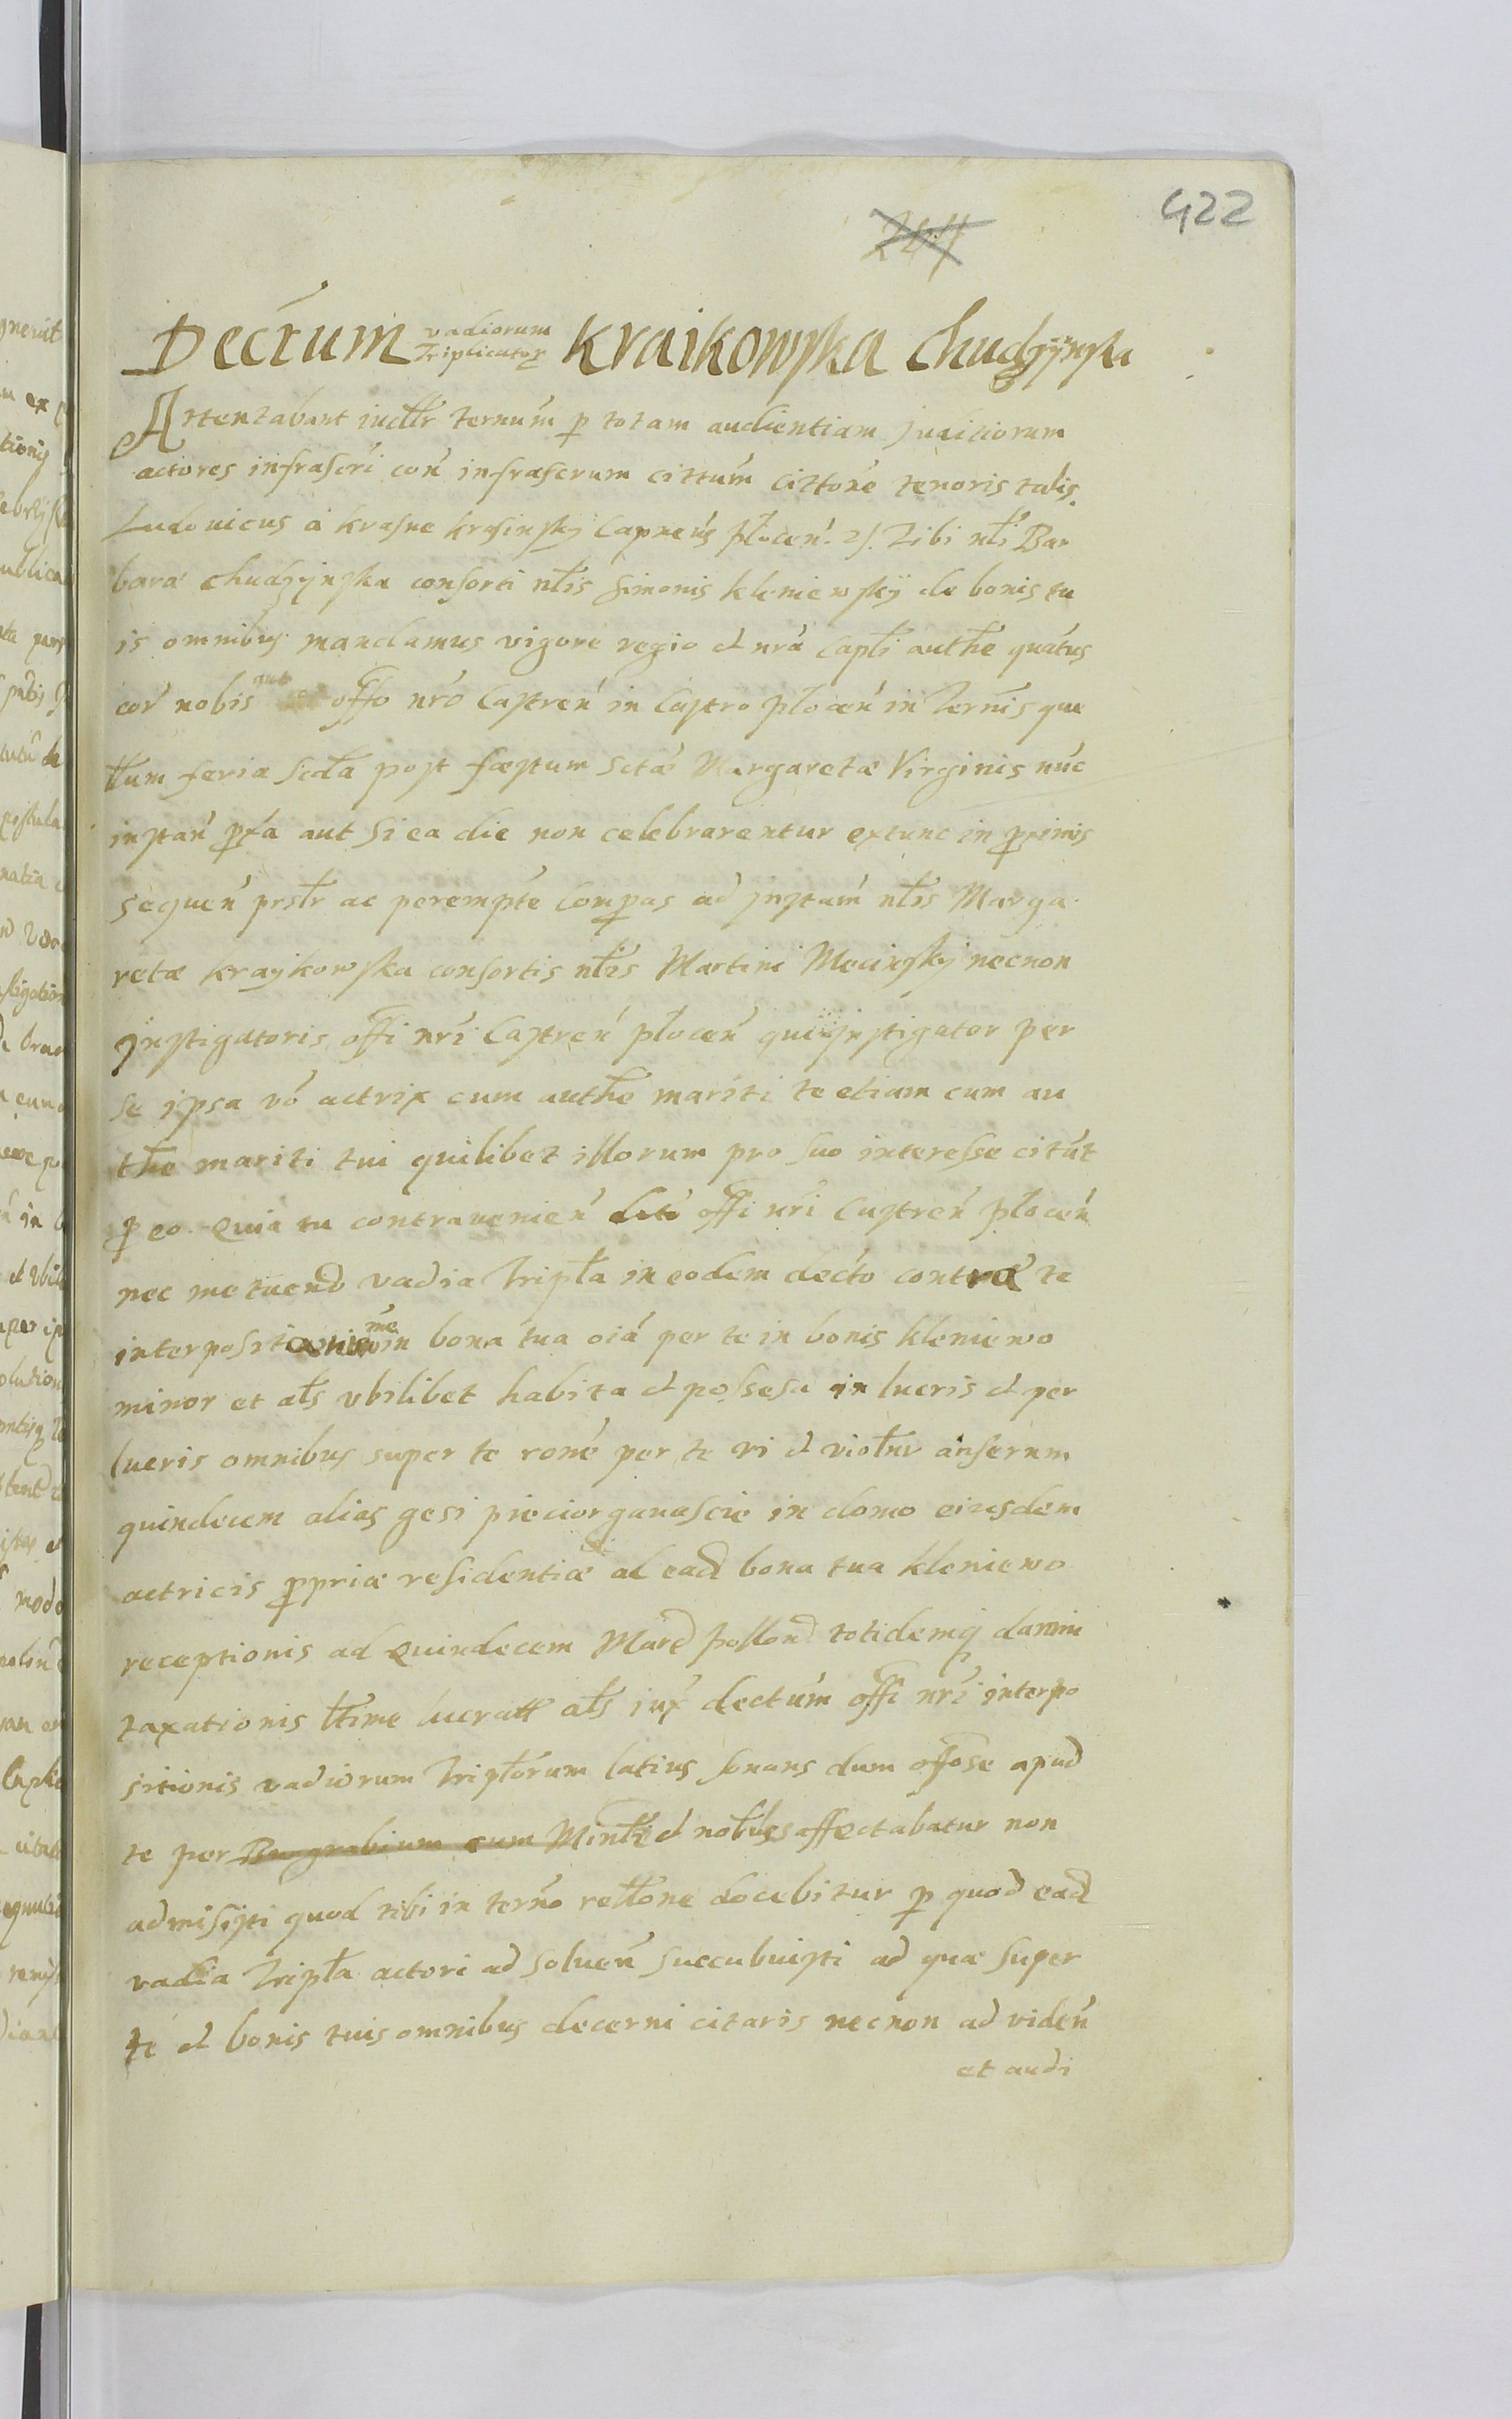 422
Decrum vadiorum Triplicator Kraikowska Chudzÿnska
Attentabant iudlr ternum p totam audientiam Juditiorum
actores infrascri con infrascrum cittum cittone tenoris talis.
Ludouicus a Krasne Krasinskÿ Capneus plocen. Tibi nli Bar
barae Chudzÿnska consorti nlis Simonis Kleniewskÿ de bonis tu
is omnibus mandamus vigore regio et nra Capli authe quatus
cor nobis aut offo nro Castren in Castro plocen in Ternis que
llum feria scda post faestum Sctae Margaretae Virginis nuc
instan pxa aut si ea die non celebrarentur extunc in pximis
sequen prslr ac perempte Compas ad Jnstam nlis Marga
retae Kraÿkowska consortis nlis Martini Mecinskÿ necnon
Jnstigatoris offi nri Castren plocen qui Jnstigator per
se ipsa vo actrix cum authe mariti te etiam cum au
the mariti tui quilibet illorum pro suo interesse citut
p eo. Quia tu contrauenien dcto offi nri Castren plocen
nec metuend vadia Tripla in eodem decto contra te
in bona tua oia per te in bonis Kleniewo
minor et als vbilibet habita et possesa in lucris et per
lucris omnibus super te rone per te vi et violnr anserum
quindecem alias gesi pieciorganascie in domo eiusdem
actricis ppriae residentiae ad ead bona tua Kleniewo
receptionis ad Quindecem Marc pollon totidemq damni
taxationis ltime lucratt als iux dectum offi nri interpo
sitionis vadiorum Triplorum latius sonans dum offose apud
te per Burgrabium cum Minlri et nobles affectabatur non
admisisti quod tibi in terno rellone docebitur p quod ead
vadia Tripla actori ad soluen succubuisti ad quae super
te et bonis tuis omnibus decerni citaris necnon ad viden
et audi